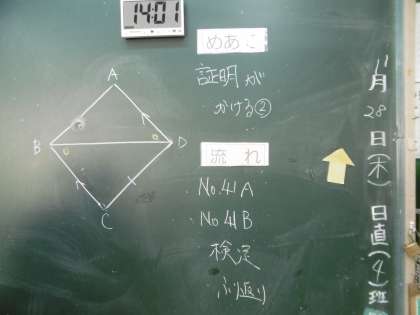 14:01
めあて
証明が
かける②
流れ
No.41A
No.41B
検定
ふり返り
A
B
D
C
11月28日(木)日直(4)班